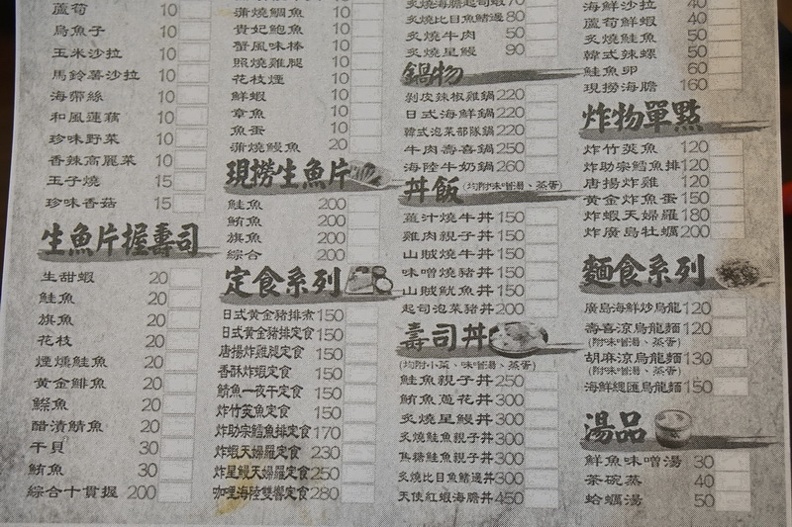 蘆筍 10
烏魚子 10
玉米沙拉 10
馬鈴薯沙拉 10
海帶絲 10
和風蓮藕 10
珍味野菜 10
香辣高麗菜 10
玉子燒 15
珍味香菇 15
生魚片握壽司
生甜蝦 20
鮭魚 20
旗魚 20
花枝 20
煙燻鮭魚 20
黃金鯡魚 20
鰶魚 20
醋漬鯖魚 20
干貝 30
鮪魚 30
綜合十貫握 200
蒲燒鯛魚 10
貴妃鮑魚 10
蟹風味棒 10
照燒雞腿 10
花枝煙 10
鮮蝦 10
章魚 10
魚蛋 10
蒲燒鰻魚 20
現撈生魚片
鮭魚 200
鮪魚 200
旗魚 200
綜合 200
定食系列
日式黃金豬排煮 150
日式黃金豬排定食 150
唐揚炸雞腿定食 150
香酥炸蝦定食 150
鯖魚一夜干定食 150
炸竹筴魚定食 150
炸助宗鱈魚排定食 170
炸蝦天婦羅定食 230
炸星鰻天婦羅定食 250
咖哩海陸雙響定食 280
炙燒海膽起司蝦 70
炙燒比目魚鰭邊 80
炙燒牛肉 50
炙燒星鰻 90
鍋物
剝皮辣椒雞鍋 220
日式海鮮鍋 220
韓式泡菜部隊鍋 220
牛肉壽喜鍋 250
海陸牛奶鍋 260
丼飯(均附味噌湯、蒸蛋)
薑汁燒牛丼 150
雞肉親子丼 150
山賊燒牛丼 150
味噌燒豬丼 150
山賊魷魚丼 150
起司泡菜豬丼 200
壽司丼
(均附小菜、味噌湯、蒸蛋)
鮭魚親子丼 250
鮪魚蔥花丼 300
炙燒星鰻丼 300
炙燒鮭魚親子丼 300
焦糖鮭魚親子丼 300
炙燒比目魚鰭邊丼 300
天使紅蝦海膽丼 450
海鮮沙拉 40
蘆筍鮮蝦 40
炙燒鮭魚 50
韓式辣螺 50
鮭魚卵 60
現撈海膽 160
炸物單點
炸竹筴魚 120
炸助宗鱈魚排 120
唐揚炸雞 120
黃金炸魚蛋 150
炸蝦天婦羅 180
炸廣島牡蠣 200
麵食系列
廣島海鮮炒烏龍 120
壽喜涼烏龍麵 120
(附味噌湯、蒸蛋)
胡麻涼烏龍麵 130
(附味噌湯、蒸蛋)
海鮮總匯烏龍麵 150
湯品
鮮魚味噌湯 30
茶碗蒸 40
蛤蠣湯 50